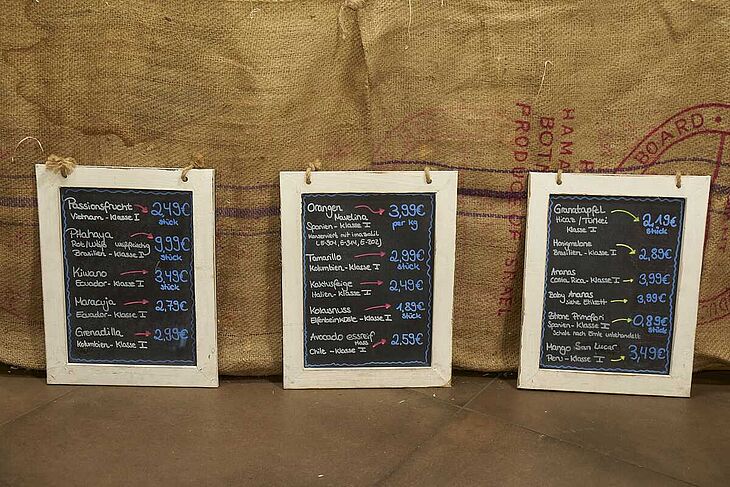 Passionsfrucht 2,49€
Vietnam - Klasse I stück
Pitahaya
Rot/Weiß weißfleischig 9,99€
Brasilien - Klasse I stück
Kiwano 3,49€
Ecuador - Klasse I stück
Maracuja 2,79€
Ecuador - Klasse I
Grenadilla 2,99€
Kolumbien - Klasse I
Orangen 3,99€
Navelina per kg
Spanien - Klasse I
Konserviert mit imazalil
Tamarillo 2,99€
Kolumbien - Klasse I stück
Kaktusfeige 2,49€
Italien - Klasse I
Kolanuss 1,89€
Elfenbeinküste - Klasse I stück
Avocado essreif 2,59€
Hass
Chile - Klasse I
Granatapfel 2,19€
Hicaz/Türkei stück
Klasse I
Honigmelone 2,89€
Brasilien - Klasse I
Ananas 3,99€
Costa Rica - Klasse I
Baby Ananas 3,99€
siehe Etikett
Zitone Primofiori 0,89€
Spanien - Klasse I stück
Schale nach Ernte unbehandelt
Mango San Lucar 3,49€
Peru - Klasse I
PRODUCE OF
BOARD